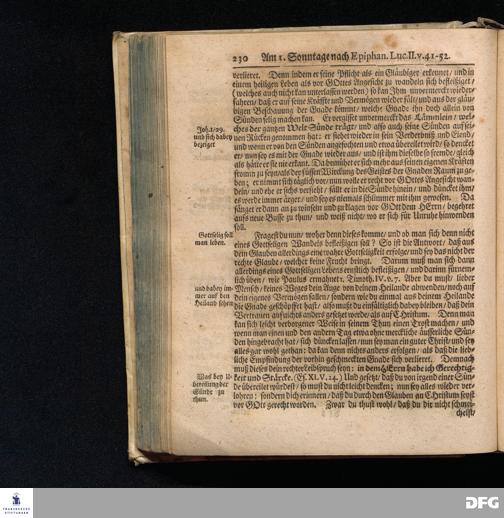 230 Am 1. Sonntage nach Epiphan. Luc. II. v. 41-52.
verlieret. Denn indem er seine Pflicht als ein Gläubiger erkennet / und in
einem heiligen Leben als vor GOttes Angesicht zu wandeln sich befleißiget /
(welches auch nicht kan unterlassen werden) so kan Ihm unvermerckt wieder-
fahren / daß er auf seine Kräffte und Vermögen wieder fält / und aus der gläu-
bigen Beschauung der Gnade kömmt / welche Gnade ihn doch allein von
Sünden selig machen kan. Er vergisset unvermerckt das Lämmlein / wel-
Joh. 1/29. ches der gantzen Welt Sünde trägt / und also auch seine Sünden auf sei-
und sich dabey nen Rücken genommen hat: er siehet wieder in sein Verderbniß und Elend /
bezeiget und wenn er von den Sünden angefochten und etwa übereilet wird / so dencket
er / nun sey es mit der Gnade wieder aus / und ist ihm dieselbe so fremde / gleich
als hätte er sie nie erkant. Da bemühet er sich mehr aus seinen eigenen Kräfften
fromm zu seyn / als der süssen Wirckung des Geistes der Gnaden Raum zu ge-
ben; er nimmt sich täglich vor / nun wolle er recht vor GOttes Angesicht wan-
deln / und ehe er sichs versieht / fällt er in die Sünde hinein / und düncket ihm /
es werde immer ärger / und sey es niemals schlimmer mit ihm gewesen. Da
fänget er dann an zu winseln und zu klagen vor GOtt dem HErrn / begehret
aufs neue Busse zu thun / und weiß nicht / wo er sich für Unruhe hinwenden
soll.
Gottselig soll Fragest du nun / woher denn dieses komme / und ob man sich denn nicht
man leben. eines Gottseligen Wandels befleißigen soll? So ist die Antwort / daß aus
dem Glauben allerdings eine wahre Gottseligkeit erfolge / und sey das nicht der
rechte Glaube / welcher keine Frucht bringt. Darum muß man sich dann
allerdings eines Gottseligen Lebens ernstlich befleißigen / und darinn fürnem-
lich üben / wie Paulus ermahnet 1. Timoth. IV. v. 7. Aber du must / lieber
und dabey im- Mensch / keines Weges dein Auge von deinem Heilande abwenden / noch auf
mer auf den dein eigenes Vermögen fallen / sondern wie du einmal aus deinem Heilande
Heiland sehen. die Gnade geschöpffet hast / also must du einfältiglich dabey bleiben / daß dein
Vertrauen auf nichts anders gesetzet werde / als auf CHristum. Denn man
kan sich leicht verborgener Weise in seinem Thun einen Trost machen / und
wenn man einen und den andern Tag etwa ohne merckliche äusserliche Sün-
den hingebracht hat / sich düncken lassen / nun sey man ein guter Christ / und sey
alles gar wohl gethan: da kan denn nichts anders erfolgen / als daß die lieb-
liche Empfindung der vorhin geschmeckten Gnade sich verlieret. Demnach
muß dieses dein rechter Leibspruch seyn: in dem HErrn habe ich Gerechtig-
Was bey U- keit und Stärcke. (Es. XLV. 24.) Und gesetzt / daß du von irgend einer Sün-
bereilung der de übereilet würdest / so must du nicht leicht dencken; nun sey alles wieder ver-
Sünde zu lohren: sondern dich erinnern / daß du durch den Glauben an CHristum seyst
thun. vor GOtt gerecht worden. Zwar du thust wohl / daß du dir nicht schmei-
chelst /
FRANCKESCHE
STIFTUNGEN
DFG